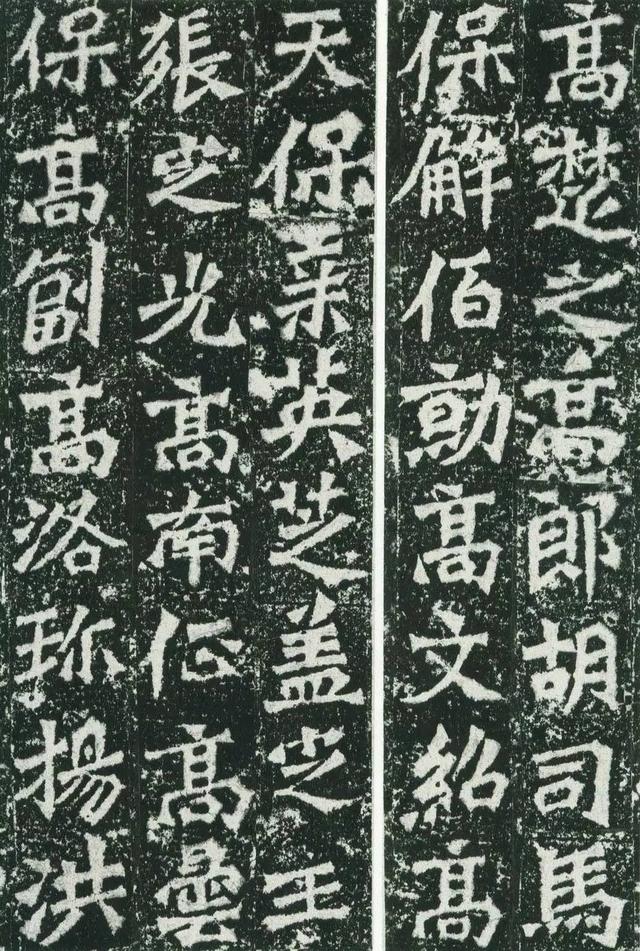 高楚之高郎胡司馬
保解佰勍高文紹高
天保英芝盖定王
張定光高南征高曇
保高副高洛珎揚洪